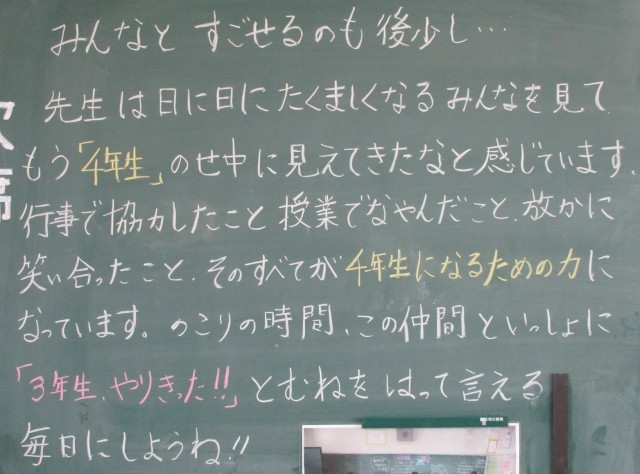 みんなと すごせるのも 後少し…
先生は日に日にたくましくなるみんなを見て、
もう「4年生」のせ中に見えてきたなと感じています。
行事で協力したこと 授業でなやんだこと、放かに
笑い合ったこと、そのすべてが 4年生になるための力に
なっています。のこりの時間、この仲間といっしょに
「3年生、やりきった!!」とむねをはって言える
毎日にしようね!!
欠席